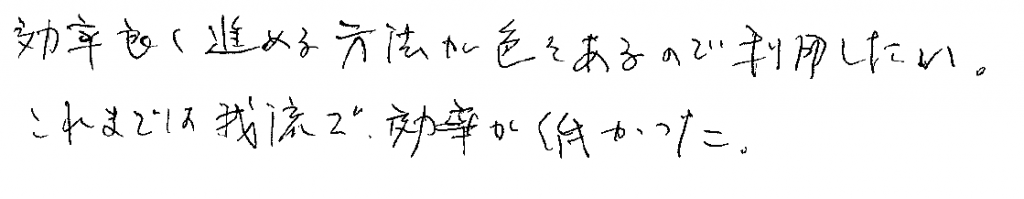 効率良く進める方法が色々あるので利用したい。
これまでは我流で、効率が低かった。